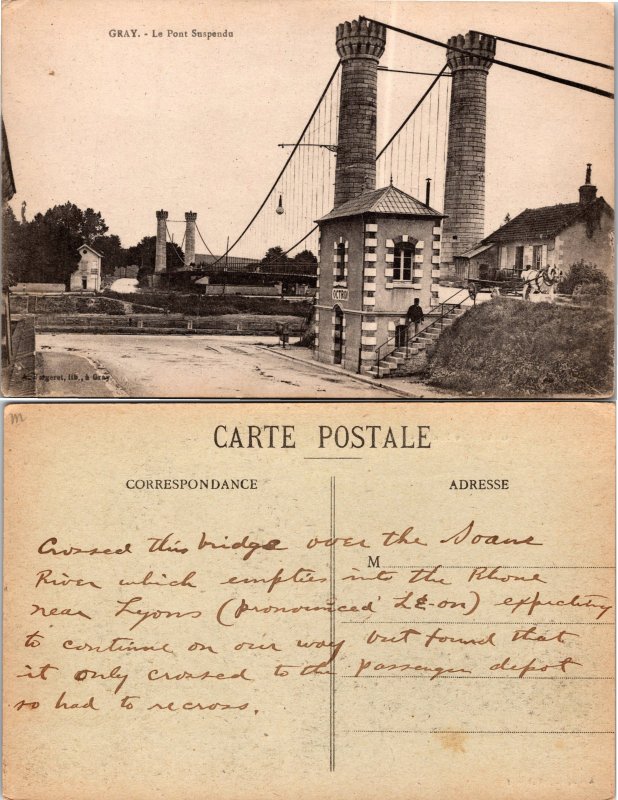 GRAY. - Le Pont Suspendu
OCTROI
A. Fargeret, lib., à Gray
m
CARTE POSTALE
CORRESPONDANCE
ADRESSE
M
Crossed this bridge over the Soane
River which empties into the Rhone
near Lyons (pronounced Le-on) expecting
to continue on our way but found that
it only crossed to the passenger depot
so had to recross.